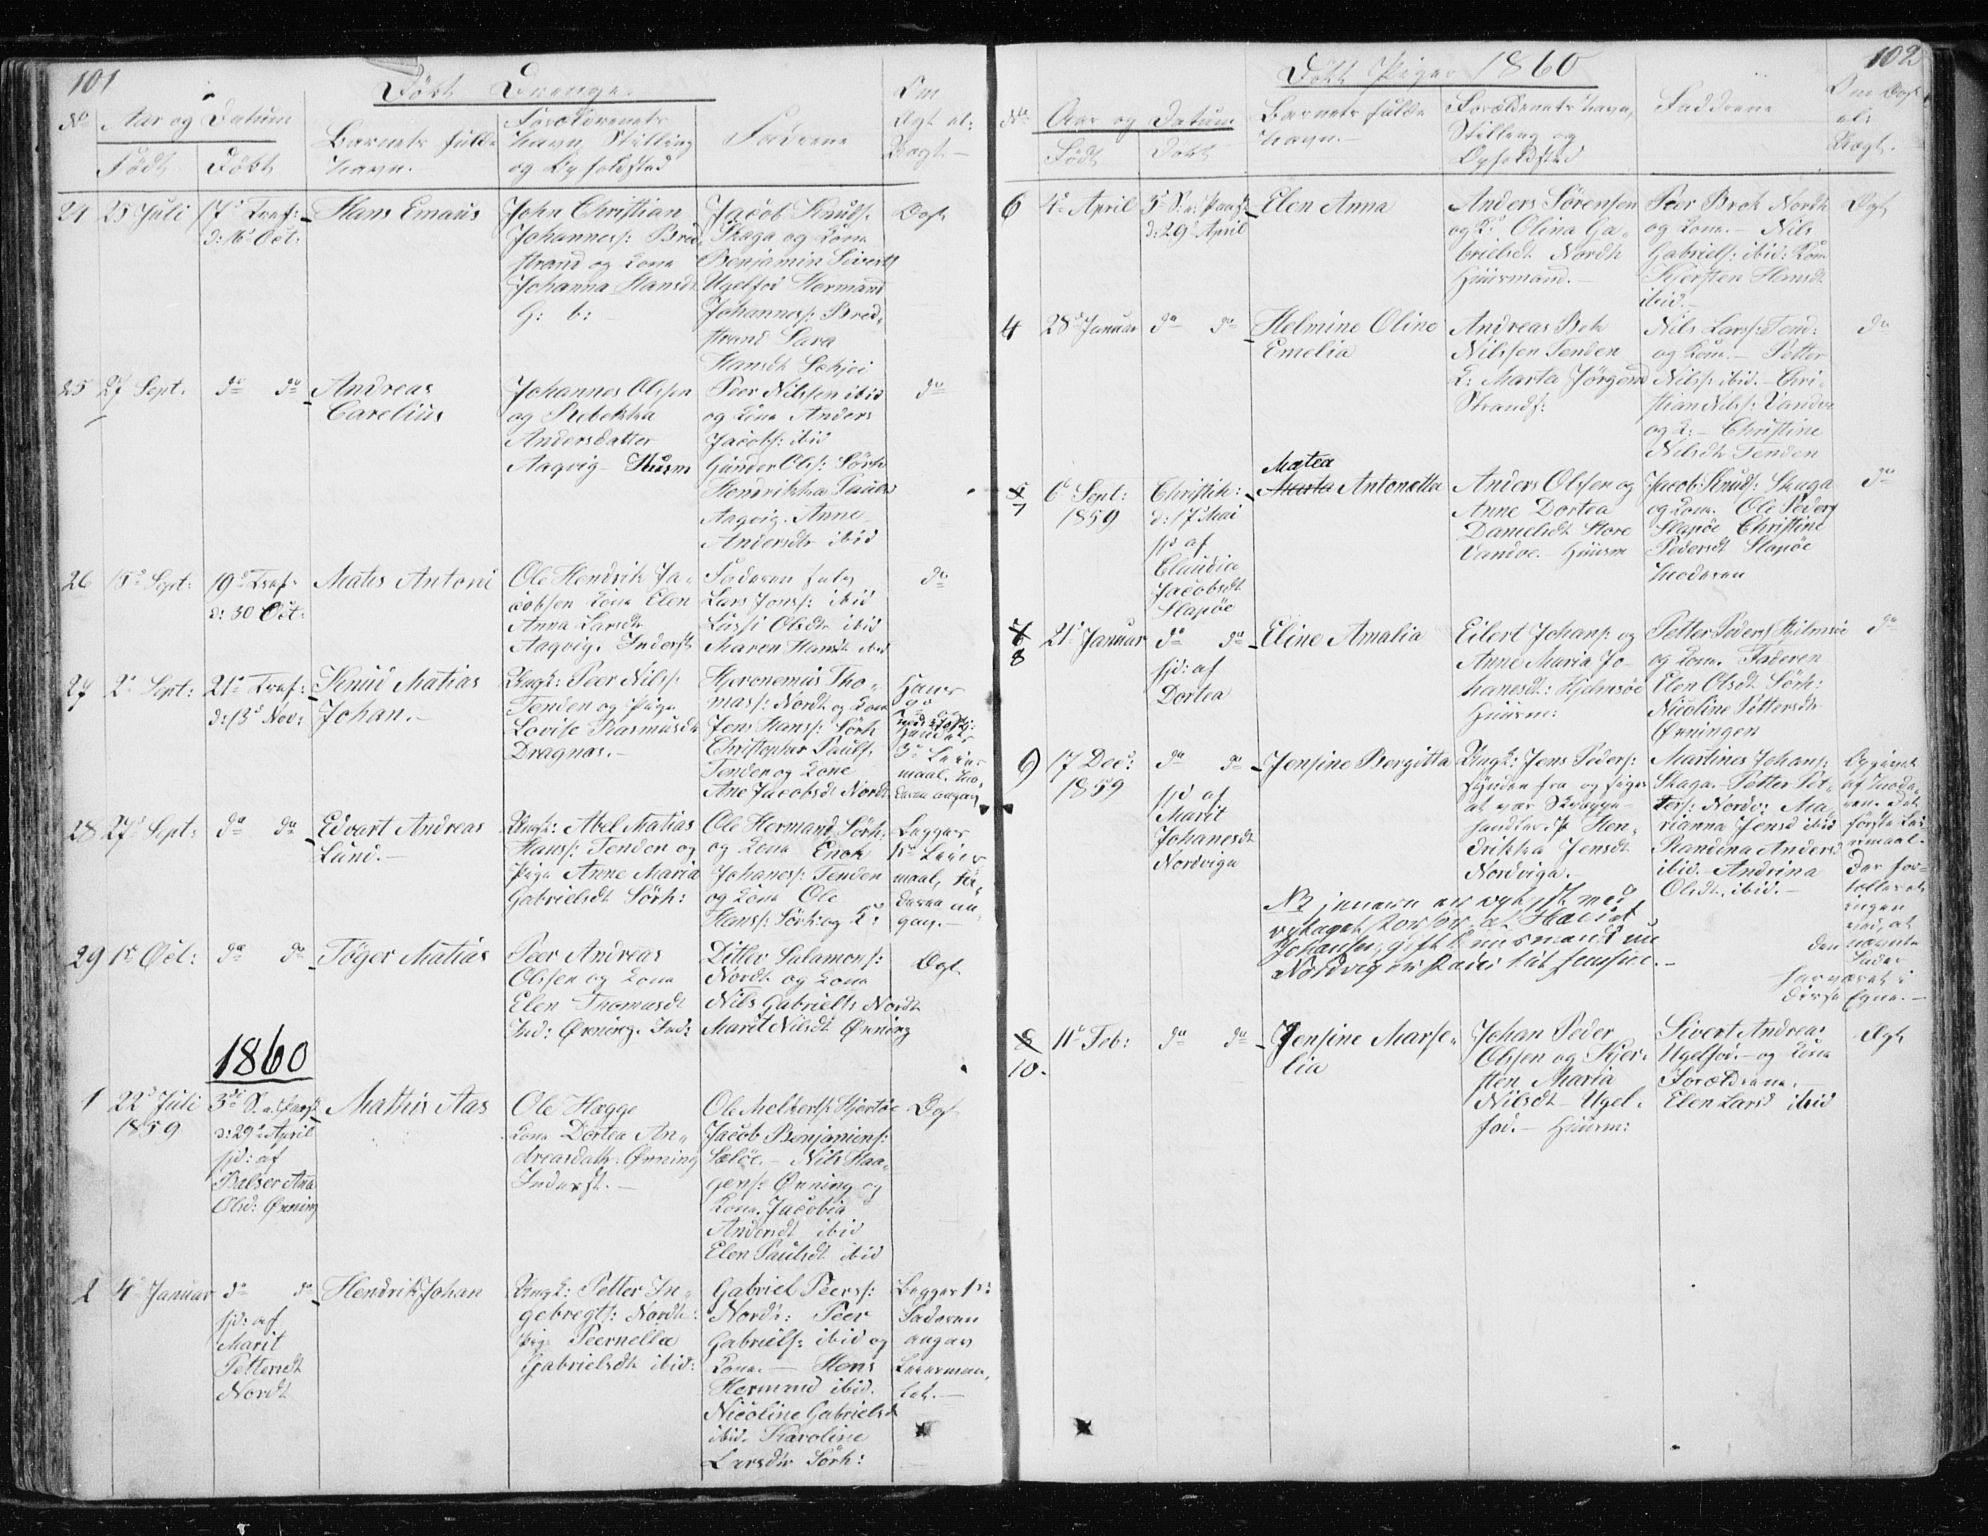 101
Döbt Drenge.
No
Aar og Datum
Födt
Döbt
Barnets fulde
Navn.
Forældrenets
Navn, Stilling
og Opholdsted
Fadderne
Om
Ægt el:
Uægt.
24
25 Juli
17d Tref:
d: 16 Oct:
Hans Emaus
John Christian
Johanness: Bred-
strand og Kone
Johanna Hansdt
G: b:
Jacob Knuds:
Skaga og Kone
Benjamin Siverts
Ugelfod Hermand
Johanness: Bred-
strand Sara
Hansdt
25
27 Sept.
do do
Andreas
Carelius
Johannes Olsen
og Rebekka
Andersdatter
Aagvig Husm
Peer Nilssen ibid
og Kone Anders
Jacobs: ibid
Gunder Ols: Sörh
Hendrikka
Aagvig. Anne
Andersdtr ibid
do
26
18d Sept:
19d Tref:
d: 30 Oct:
Mats Antoni
Ole Hendrik Ja-
cobsen Kone Elen
Anna Larsdt
Aagvig. Inderst
Faderen selv
Lars Jons: ibid
Lussi Olsdt ibid
Maren Hansdt ibid
do
27
2d Sept:
21d Tref:
d: 13d Nov:
Knud Matias
Johan.-
Ungk: Peer Nils:
Tenden og Pige
Lovise Rasmusdt
Dragnas.-
Hjeronemus Tho-
mass: Nordt og Kone
Jens Hans: Sörh
Christopher Pauls:
Tenden og Kone
Ane Jacobsdt Nordt
28
27d Sept:
do do
Edvart Andreas
Lund.-
Ungk: Abel Matias
Hans: Tenden og
Pige Anne Maria
Gabrielsdt Sörh:
Ole Hermand Sörh:
og Kone Enok
Johanes: Tenden
og Kone Ole
Hans: Sörh: og K:
Begges
1st Leier
maal, Fa-
deren an-
gav.-
29
1st Oct:
do do
Töger Matias
Peer Andreas
Olssen og Kone
Elen Thomasdt
Ind: Örning. Ind:
Ditlev Salamons:
Nordt og Kone
Nils Gabriells Nordt
Marit Nilsdt Örning
Ægt
1860
1
22d Juli
1859
3de S. e. Paask
d: 29d April
hjd: af
Balser Ana
Olsd: Örning
Mathis Aas
Ole Hegge
Kone Dortea An-
dreasdatr: Örning
Inderst.-
Ole Melkers: Hjertöe
Jacob Benjamins:
Sælöe.- Nils Haa-
gens: Örning og
Kone. Jacobia
Andersdt ibid
Elen Paulsdt ibid
Ægt
2
4d Januar
do do
hjd: af
Marit
Pettersdt
Nordt
Hendrik Johan
Ungk: Petter In-
gebregts: Nordt:
Pige Peernella
Gabrielsdt ibid:
Gabriel Peers:
Nordt: Peer
Gabriels: ibid og
Kone.- Hans
Hermand ibid.
Nicoline Gabrielsd
ibid. Karoline
Larsdtr Sörh:
Begges 1st
Faderen
angav
Leierman-
let.-
102
Döbt Piger 1860
No
Aar og Datum
Födt
Döbt
Barnets fulde
Navn.
Forældrenets Navn,
Stilling og
Opholdsted
Fadderne
Om Ægt
el:
Uægt.
6
4d April
3d S. e. Paask
d: 29d April
Elen Anna
Anders Sörensen
og K: Olina Ga-
brielsdt Nordt
Huusmand.-
Peer Brok Nordt
og Kone.- Nils
Gabriels: ibid: Kone
Kjersten Hansdt
ibid.-
Ægt
4
28d Januar
do do
Helmine Oline
Emelia
Andreas Bek
Nilssen Tenden
K: Marta Jörgine
Strands:
Nils Lars: Tend:
og Kone.- Petter
Nils: ibid.- Chri-
stian Nils: Vandve
og K:- Christine
Nilsdt Tenden
do
5
7
6 Sept:
1859
Christih:
d: 17 Mai
hjd af
Claudia
Jacobsdt
Slapöe
Matea
Marta Antonetta
Anders Olssen og
Anne Dortea
Danielsdt Store
Vandve. Huusm
Jacob Knuds: Skaga
og Kone. Ole Peders
Slapöe Christine
Pedersdt Slapöe
Moderen
do
7
8
21d Januar
do do
hjd: af
Dortea
Eline Amalia
Eilert Johans: og
Anne Maria Jo-
hanesdt: Hjelmsöe
Huusm:
Petter Peders: Hjelmsöe
og Kone. Faderen
Elen Olsdt Sörh:
Nicoline Pettersdt
Örningen
do
9
17 Dec:
1859
do do
hjd af
Marit
Johanesdt
Nordviga
Jensine Bergitta
Ungk: Jens Peders:
og siges
at vær
handler. P Hen-
drikka Jensdt
Nordviga.
Martines Johans:
Skaga. Petter Pet-
ters: Nordv: Ma-
rianna Jensd ibid
Randina Andersd
ibid. Andrina
Olsdt. ibid.-
Opgivet
af Mode-
ren. Det
förste Lei-
ermaal.
Der for-
tælles at
ingen
ved, at
den nævnte
Fader
har været i
disse Egne.-
NB
Johansen, gift Huusmand
Nordvig er Fader til Jensine.-
8
10.
11d Feb:
do do
Jensine Marse-
lia
Johan Peder
Olssen og Kjer-
sten Maria
Nilsdt Ugel-
fod.- Huusm:
Sivert Andreas
Ugelfod.- og Kone
Forældrene.-
Elen Larsd ibid
Ægt